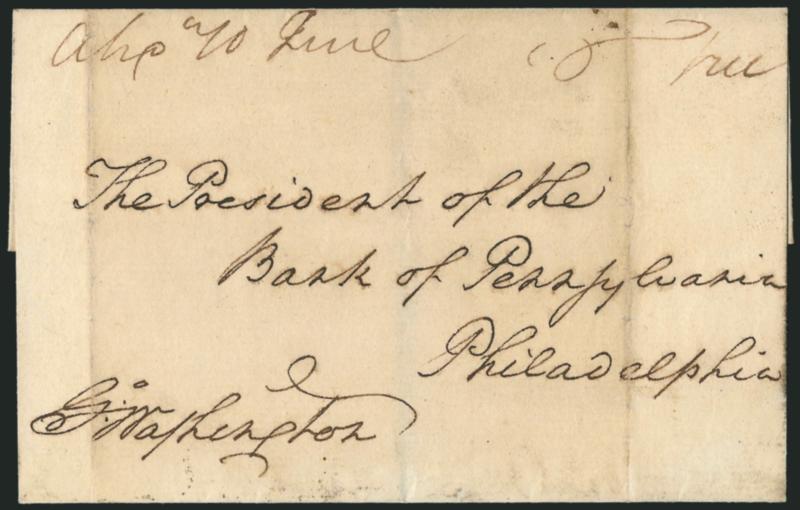 Alx 10 June Free
The President of the
Bank of Pennsylvania
Philadelphia
Go: Washington